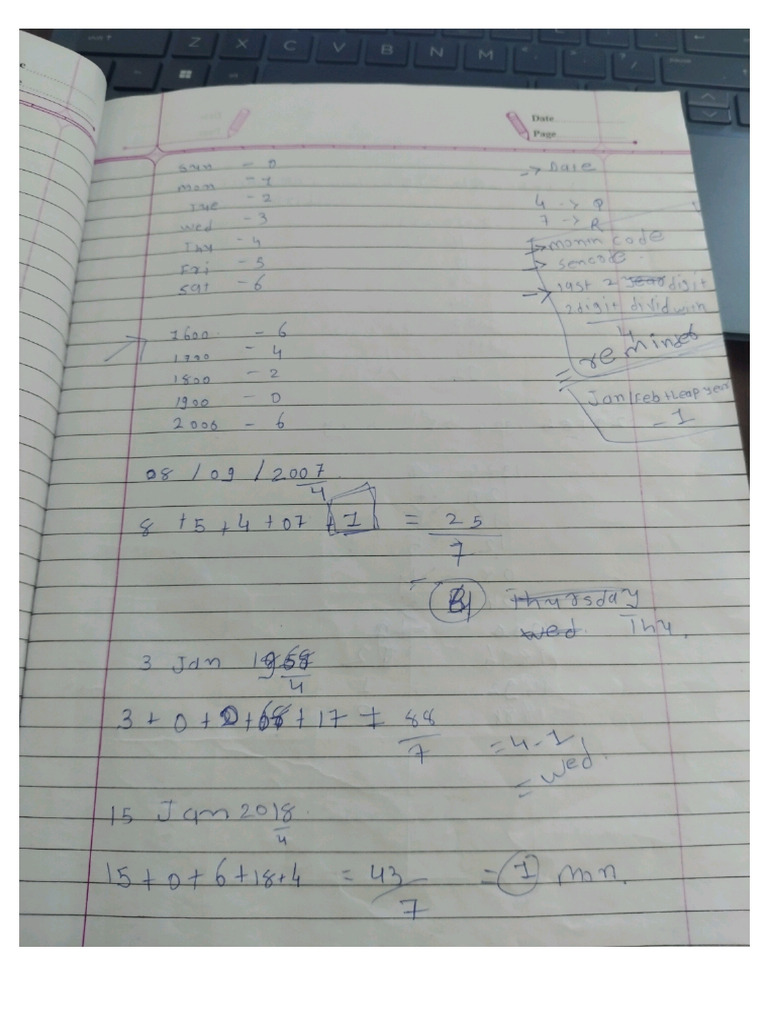 Z X C V B N M
Date
Page
Sun - 0
mon - 1
Tue - 2
wed - 3
Thy - 4
Fri - 5
sat - 6
-> Date
4 -> Q
7 -> R
-> month code
-> sencode.
-> last 2 year digit
2 digit divid with
4
= reminder
Jan/Feb + Leap year
- 1
1600 - 6
1700 - 4
1800 - 2
1900 - 0
2000 - 6
08 / 09 / 2007
4
8 + 5 + 4 + 07 + 1 = 25
7
Thursday
wed. Thu.
3 Jan 1968
4
3 + 0 + 0 + 68 + 17 = 88
7
= 4 - 1
= wed.
15 Jan 2018
4
15 + 0 + 6 + 18 + 4 = 43
7
= 1 mon.